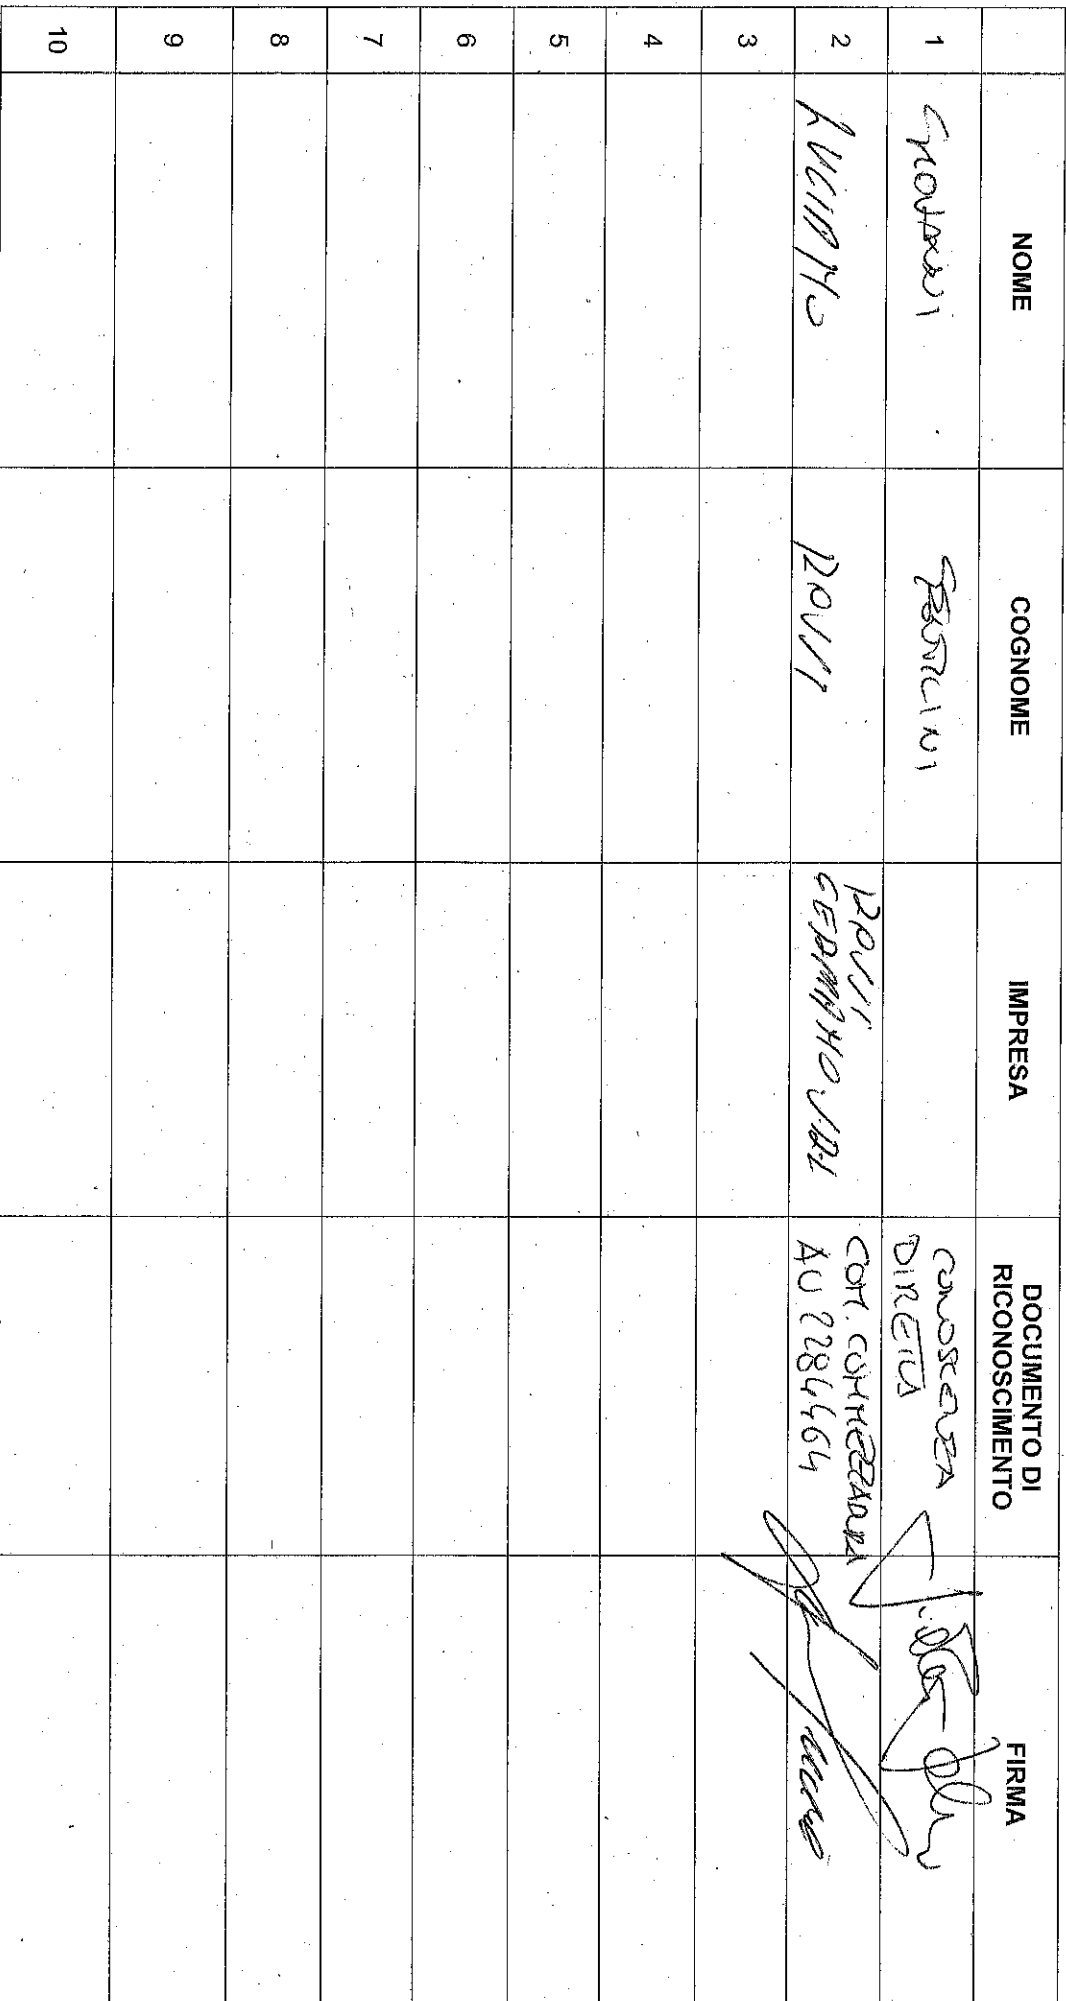 NOME COGNOME IMPRESA DOCUMENTO DI RICONOSCIMENTO FIRMA
1 GIOVANNI CONOSCENZA DIRETTA
2 LUCIANO ROSSI ROSSI GERMANO S.R.L COM. COMMEZZADURA AU 2284464
3
4
5
6
7
8
9
10